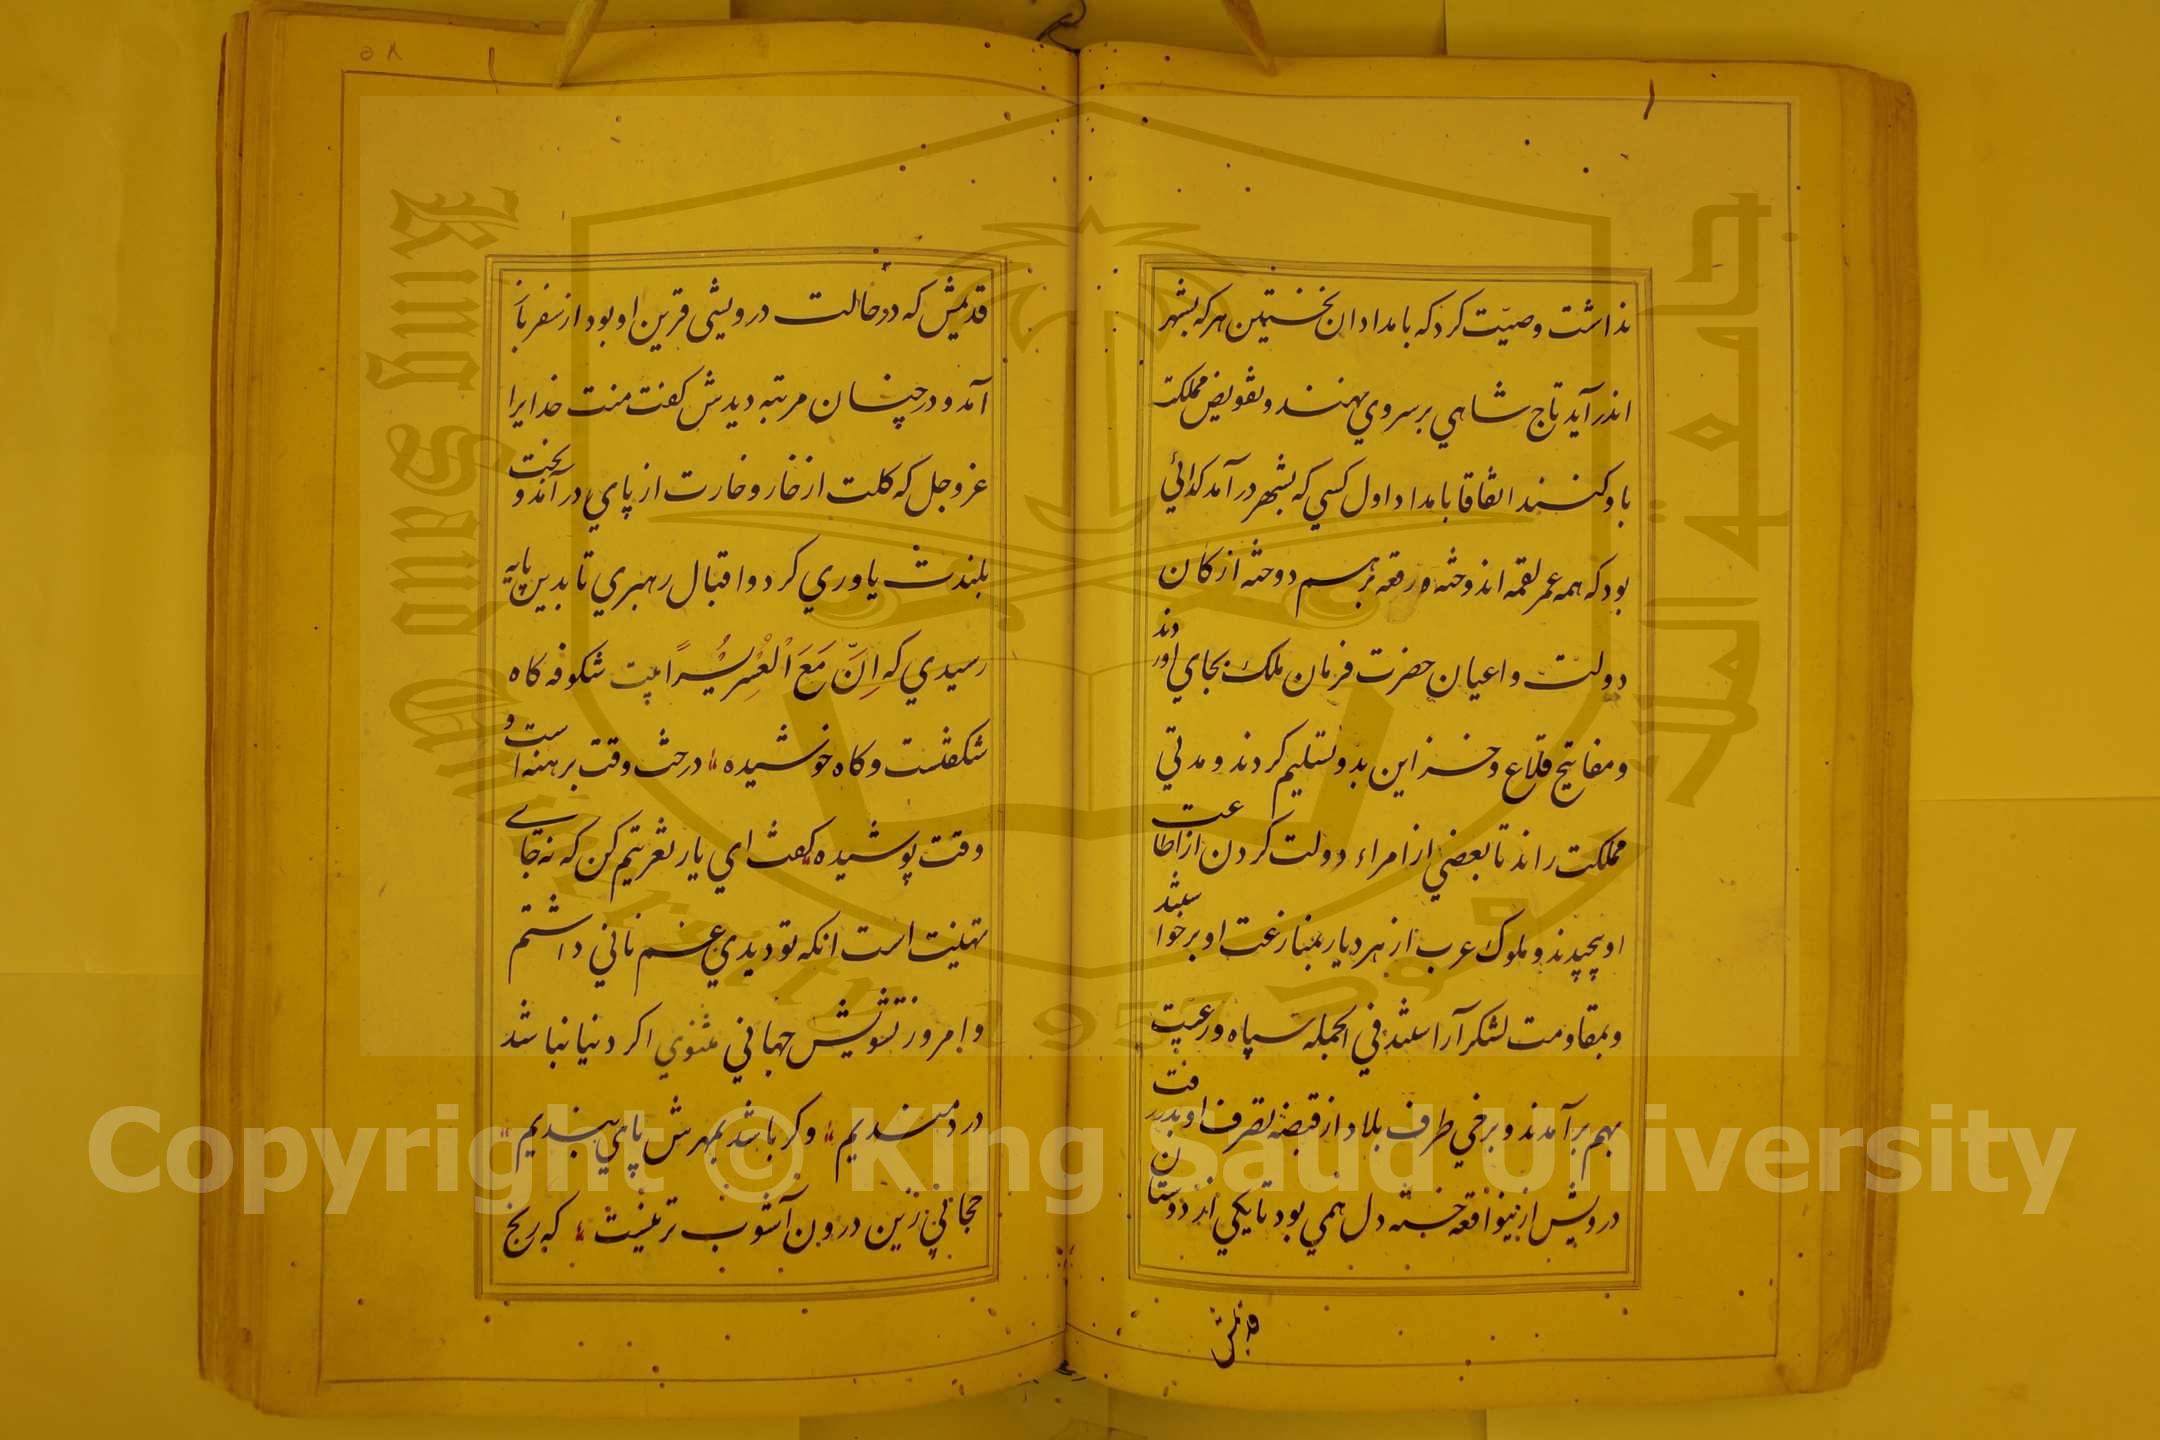 نذاشت وصیّت کرد که بامدادان نخستین هر که بشهر
اندر آید تاج شاهي بر سر وي نهند و تفویض مملکت
باو کنند اتفاقا بامداد اول کسي که بشهر در آمد کدائي
بود که همه عمر لقمه اندوخته و رقعه بر هم دوخته ارکان
دولت و اعیان حضرت فرمان ملك بجاي آوردند
و مفاتیح قلاع و خزاین بدو تسلیم کردند و مدتي
مملکت راند تا بعضي از امراء دولت کردن از اطاعت
او بپچیدند و ملوك عرب از هر دیار بمنازعت او برخواستند
و بمقاومت لشکر آراستند في الجمله سپاه و رعیت
بهم بر آمدند و برخي طرف بلاد از قبضه تصرف او بدر رفت
درویش ازینواقعه خسته دل همي بود تا یکي از دوستان
قدیمش
۵۸
قدیمش که در حالت درویشي قرین او بود از سفر باز
آمد و در چنان مرتبه دیدش کفت منت خدایرا
عز و جل که کلت از خار و خارت از پاي در آمد و بخت
بلندت یاوري کرد و اقبال رهبري تا بدین پایه
رسیدي که اِنَّ مَعَ الْعُسْرِ یُسْرًا بیت شکوفه کاه
شکفتست و کاه خوشیده درخت وقت برهنه است و
وقت پوشیده کفت اي یار تعزیتم کن که نه جاي
تهنیت است انکه تو دیدي غم ناني داشتم
و امروز تشویش جهاني مثنوي اکر دنیا نباشد
دردمندیم و کر باشد بمهرش پاي بندیم
حجابي زین درون آشوب تر نیست که رنج
Copyright © King Saud University
King Saud University
جامعة الملك سعود
1957